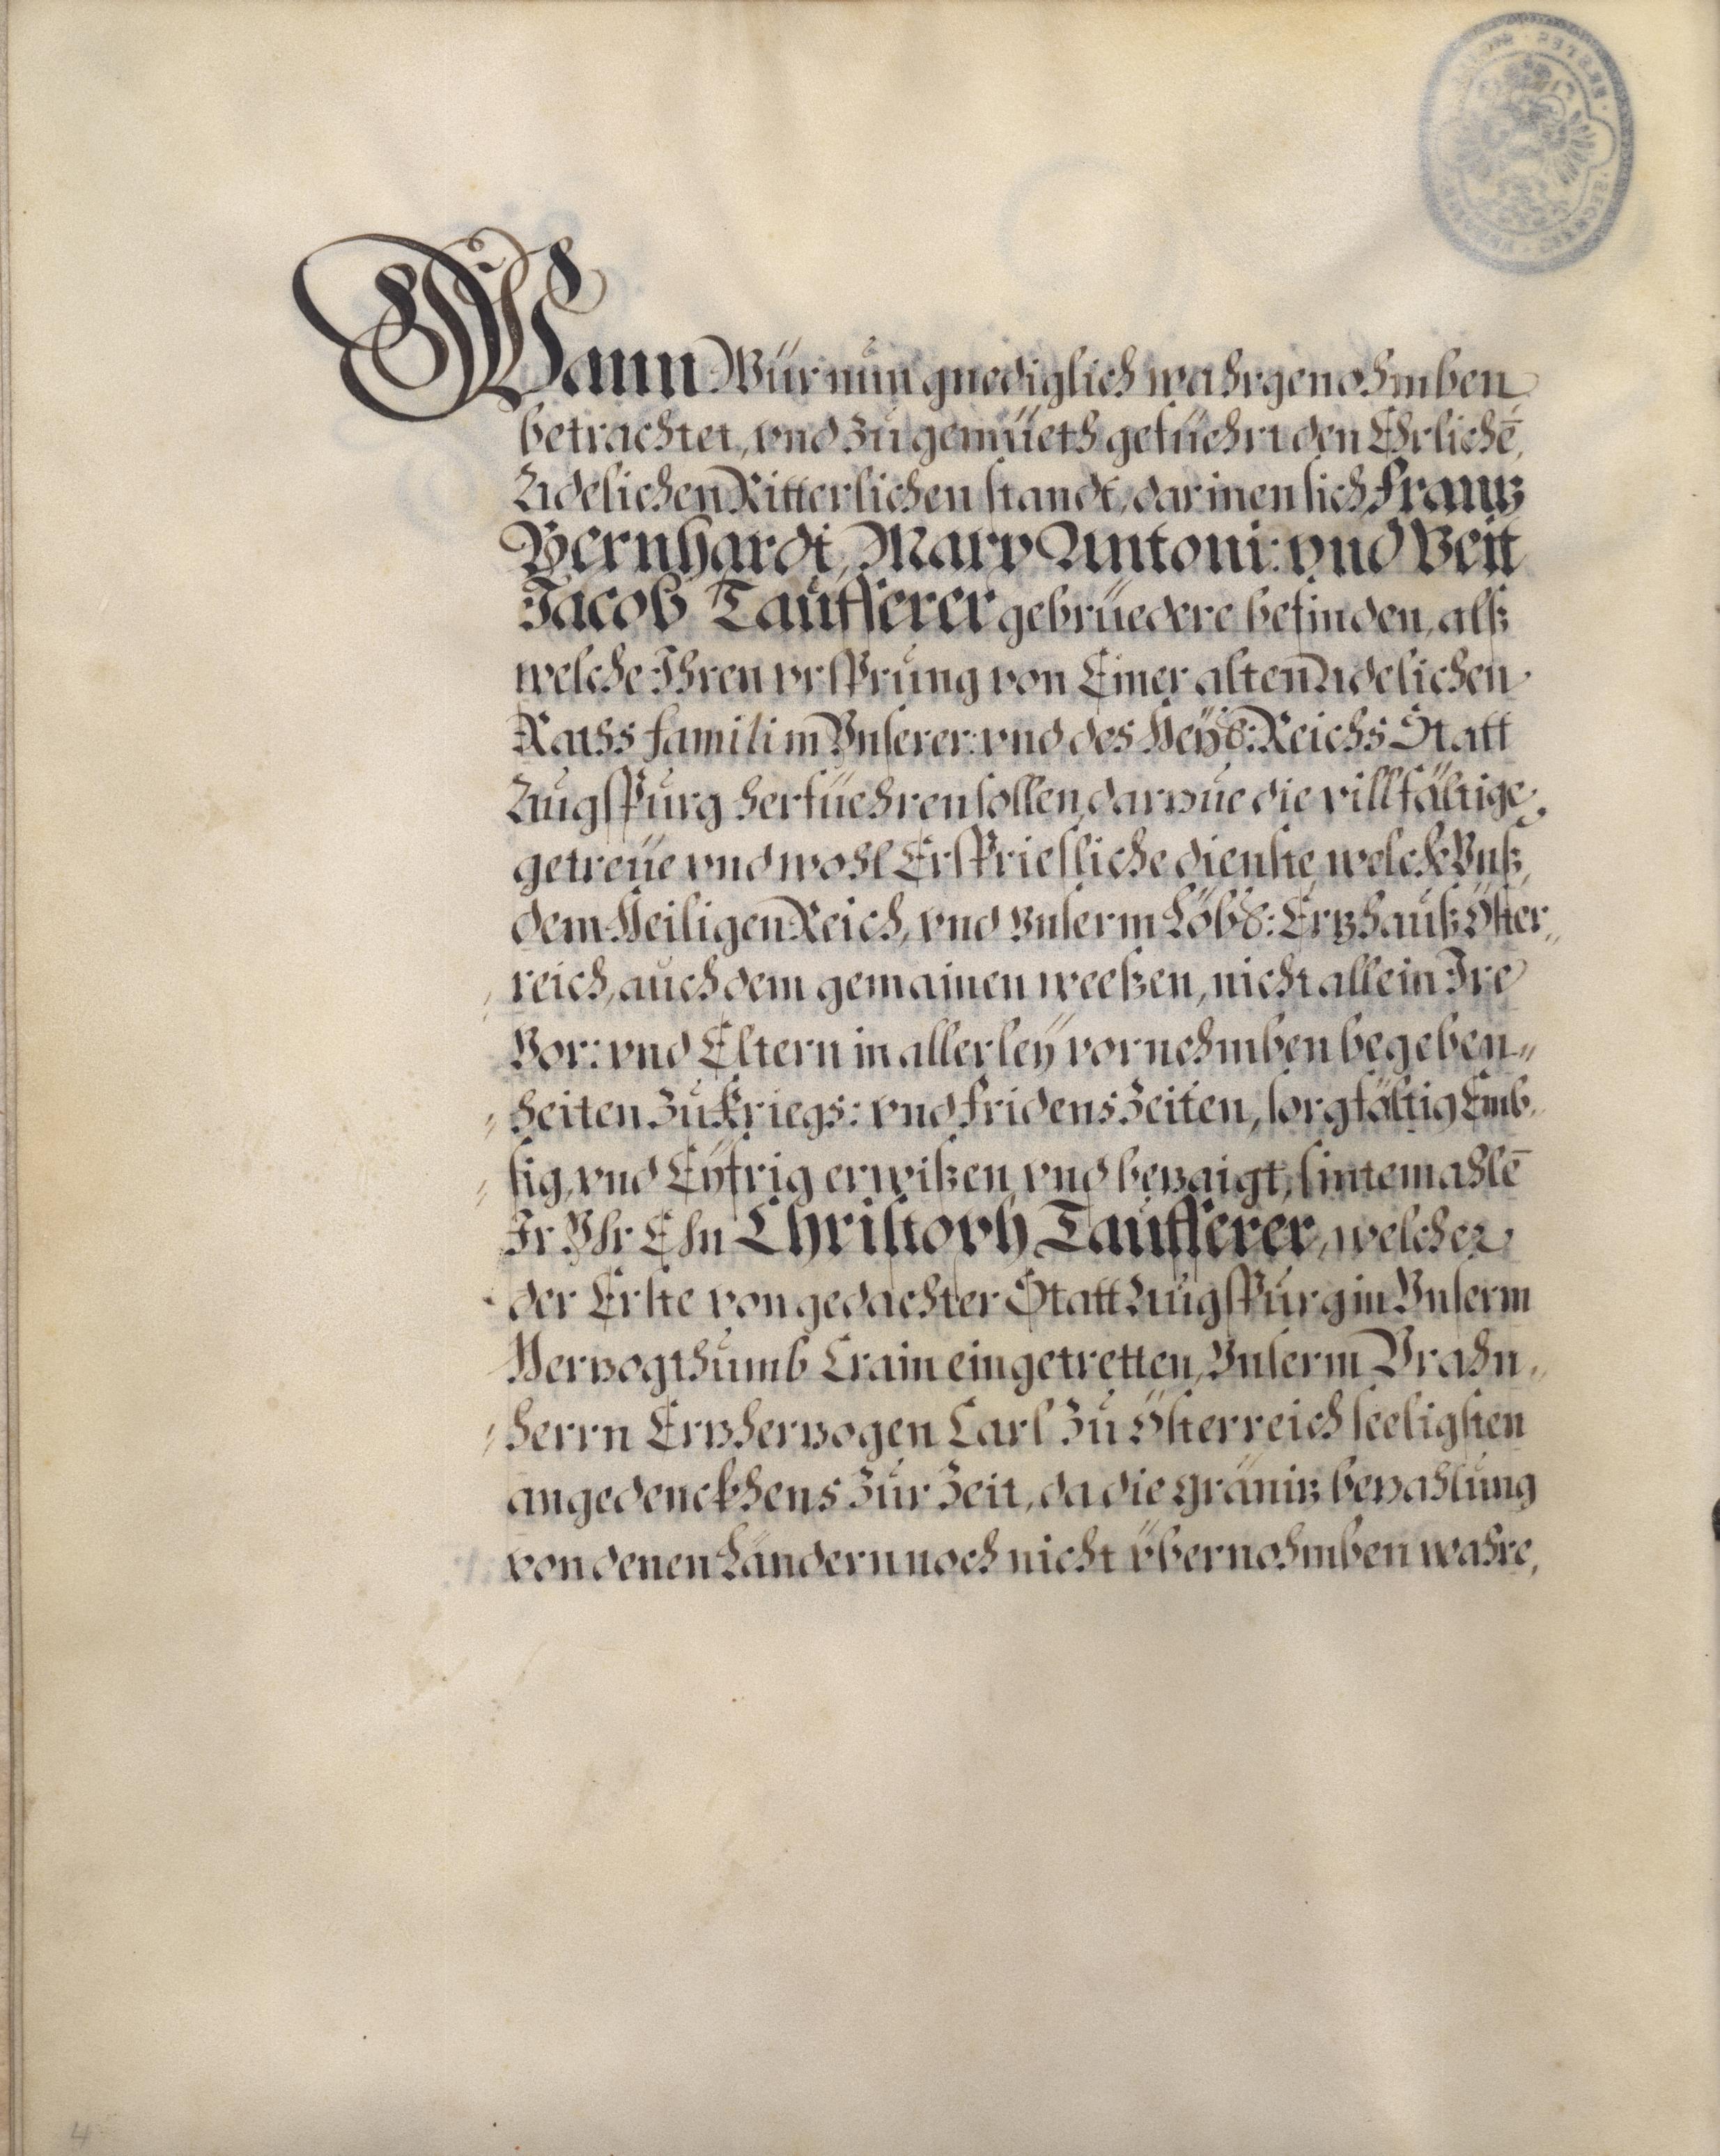 Wann Wür nŭn gnediglich wahrgenohmben
betrachtet, vnd zŭ gemüeth gefüehrt den Ehrlichē,
Adelichen Ritterlichen standt, darinen sich Frantz
Bernhardt, Marx Antoni: vnd Veit
Jacob Taŭfferer gebrüedere befinden, alß
welche Ihren vrsprŭng von Einer alten Adelichen
Raths famili in Vnserer: vnd des Heyl: Reichs Statt
Aŭgspŭrg herfüehren sollen, darzue die villfältige,
getreüe vnd wohl Ersprießliche dienste, welche Vnß,
dem Heiligen Reich, vnd Vnserm Löbl: Ertzhauß Öster„
„reich, aŭch dem gemainen weeßen, nicht allein Ire
Vor: vnd Eltern in allerleÿ vornehmben begeben„
„heiten zŭ Kriegs: vnd fridens Zeiten, sorgfältig Emb„
„sig, vnd Eÿfrig erwißen, vnd bezaigt, sintemahlē
Ir Vhr Ehn Christoph Taŭfferer, welcher
der Erste von gedachter Statt Aŭgspŭrg in Vnserm
Hertzogthŭmb Crain eingetretten, Vnserm Vrahn„
„herrn Ertzhertzogen Carl zŭ Österreich seeligsten
angedenckhens zŭr Zeit, da die gränitz bezahlŭng
von denen Ländern noch nicht vbernohmben wahre,
4